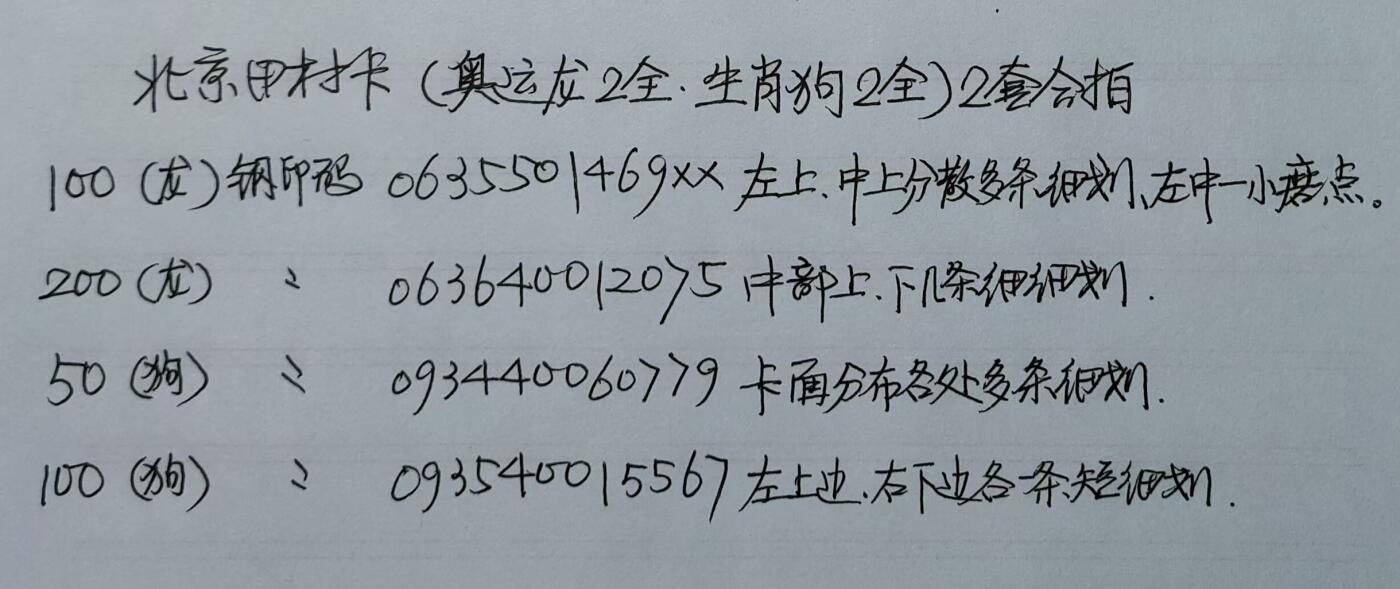 北京田村卡(奥运龙2全.生肖狗2全)2套合拍
100(龙)钢印码 0635501469xx 左上、中上分散多条细划、左中一小磨点。
200(龙) 〻 063640012075 中部上、下几条细细划.
50(狗) 〻 093440060779 卡面分布各处多条细划.
100(狗) 〻 093540015567 左上边、右下边各一条短细划.